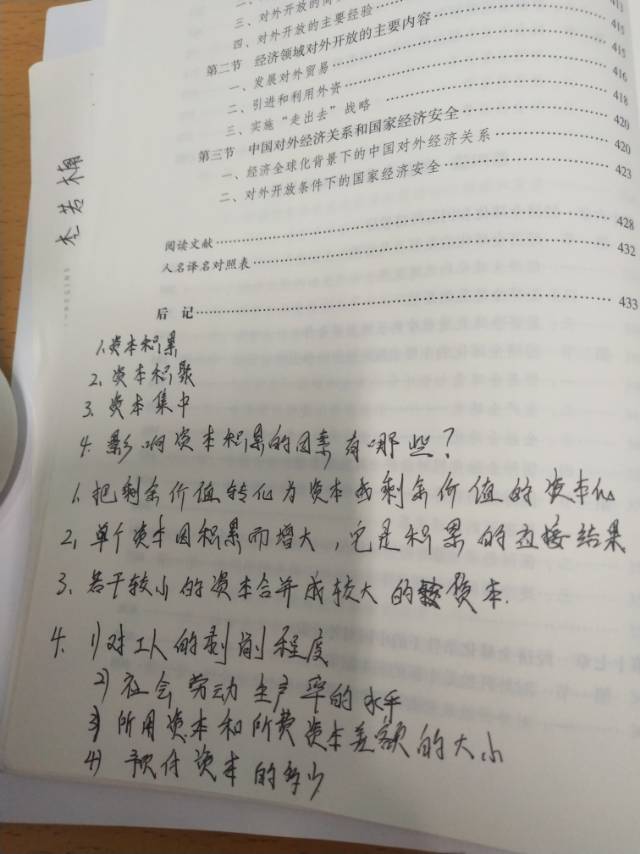 三、对外开放的
四、对外开放的主要经验 415
第二节 经济领域对外开放的主要内容 415
一、发展对外贸易 416
二、引进和利用外资 418
三、实施“走出去”战略 420
第三节 中国对外经济关系和国家经济安全 420
一、经济全球化背景下的中国对外经济关系 420
二、对外开放条件下的国家经济安全 423
阅读文献 428
人名译名对照表 432
后 记 433
1.资本积累
2、资本积聚
3. 资本集中
4. 影响资本积累的因素有哪些?
1. 把剩余价值转化为资本或剩余价值的资本化
2, 单个资本因积累而增大,它是积累的直接结果
3、若干较小的资本合并成较大的资本.
4. 1)对工人的剥削程度
2)社会劳动生产率的水平
3)所用资本和所费资本差额的大小
4) 预付资本的多少